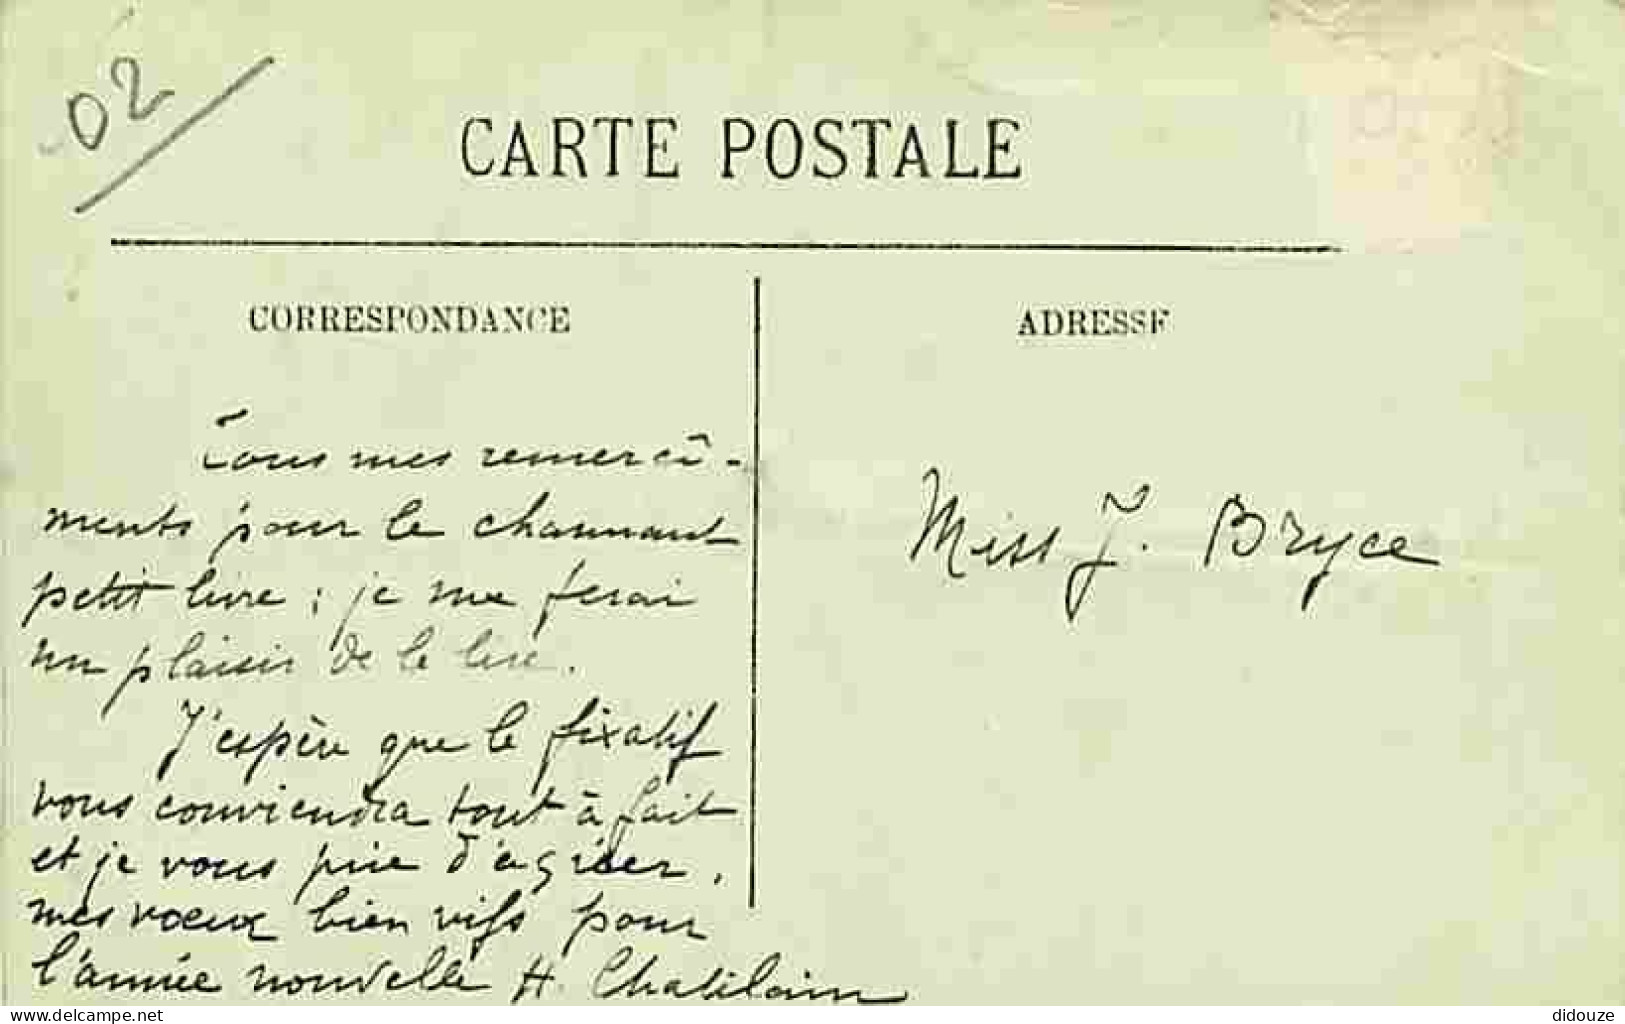 02
CARTE POSTALE
CORRESPONDANCE
ADRESSE
Tous mes remercî-
ments pour le charmant
petit livre ; je me ferai
un plaisir de le lire.
J'espère que le fixatif
vous conviendra tout à fait
et je vous prie d'agréer,
mes vœux bien vifs pour
l'année nouvelle H. Chatelain
Miss J. Bryce
delcampe.net
didouze